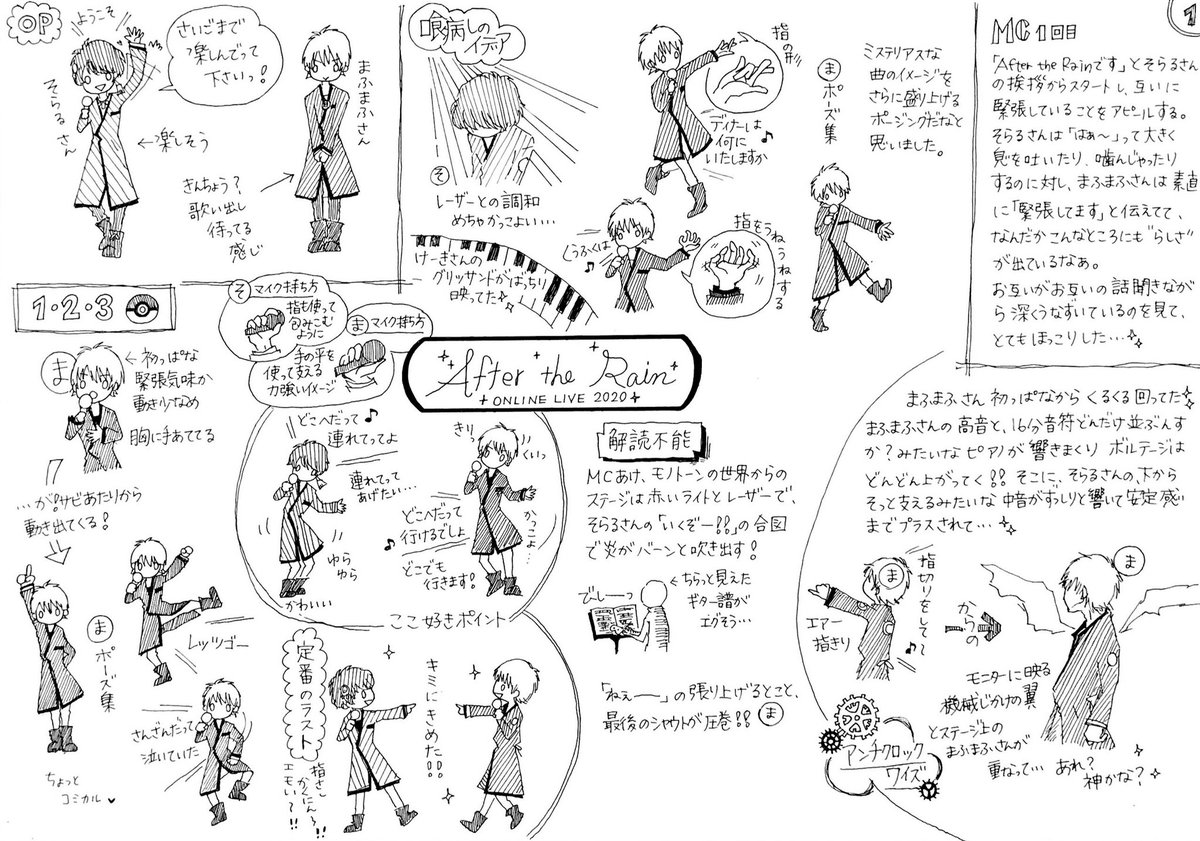 OP
ようこそ
さいごまで
楽しんでって
下さいっ!
そらるさん
←楽しそう
まふまふさん
きんちょう?
歌い出し
待ってる
感じ
喰病しの
イデア
そ
レーザーとの調和
めちゃかっこよい…
けーきさんの
グリッサンドがばっちり
映ってた
指の形
ディナーは
何に
いたしますか
くうふくは
指をうねうねする
ま ポーズ集
ミステリアスな
曲のイメージを
さらに盛り上げる
ポージングだなと
思いました。
1
MC1回目
「After the Rainです」とそらるさん
の挨拶からスタートし、互いに
緊張していることをアピールする。
そらるさんは「はぁ〜」って大きく
息を吐いたり、噛んじゃったり
するのに対し、まふまふさんは素直
に「緊張してます」と伝えてて、
なんだかこんなところにも"らしさ"
が出ているなぁ。
お互いがお互いの話聞きなが
ら深くうなずいているのを見て、
とてもほっこりした…
1・2・3
そ マイク持ち方
指も使って
包みこむ
ように
ま マイク持ち方
手の平を
使って支える
力強いイメージ
After the Rain
ONLINE LIVE 2020
ま
←初っぱな
緊張気味か
動き少なめ
胸に手あててる
…が!サビあたりから
動き出てくる!
ま ポーズ集
レッツゴー
さんざんだって
泣いていた
ちょっと
コミカル
どこへだって
連れてってよ
連れてって
あげたい…
ゆら
ゆら
かわいい
きりっ
くいっ
かっこよ…
どこへだって
行けるでしょ
どこでも
行きます!
ここ好きポイント
定番のラスト
キミにきめた!!!
指さし
かくにん〜
エモい〜!!
解読不能
MCあけ、モノトーンの世界からの
ステージは赤いライトとレーザーで、
そらるさんの「いくぞー!!」の合図
で炎がバーンと吹き出す!
でしーっ
←ちらっと見えた
ギター譜が
エグそう…
「ねぇ――」の張り上げるとこと、
最後のシャウトが圧巻!! ま
まふまふさん 初っぱなから くるくる回ってた
まふまふさんの高音と、16分音符どんだけ並ぶんす
か?みたいなピアノが響きまくり ボルテージは
どんどん上がってく!! そこに、そらるさんの、下から
そっと支えるみたいな 中音がずっしりと響いて安定感
までプラスされて…
ま
エアー
指きり
指切りをして
からの
ま
モニターに映る
機械じかけの翼
とステージ上の
まふまふさんが
重なって… あれ?
神かな?
アンチクロック
ワイズ